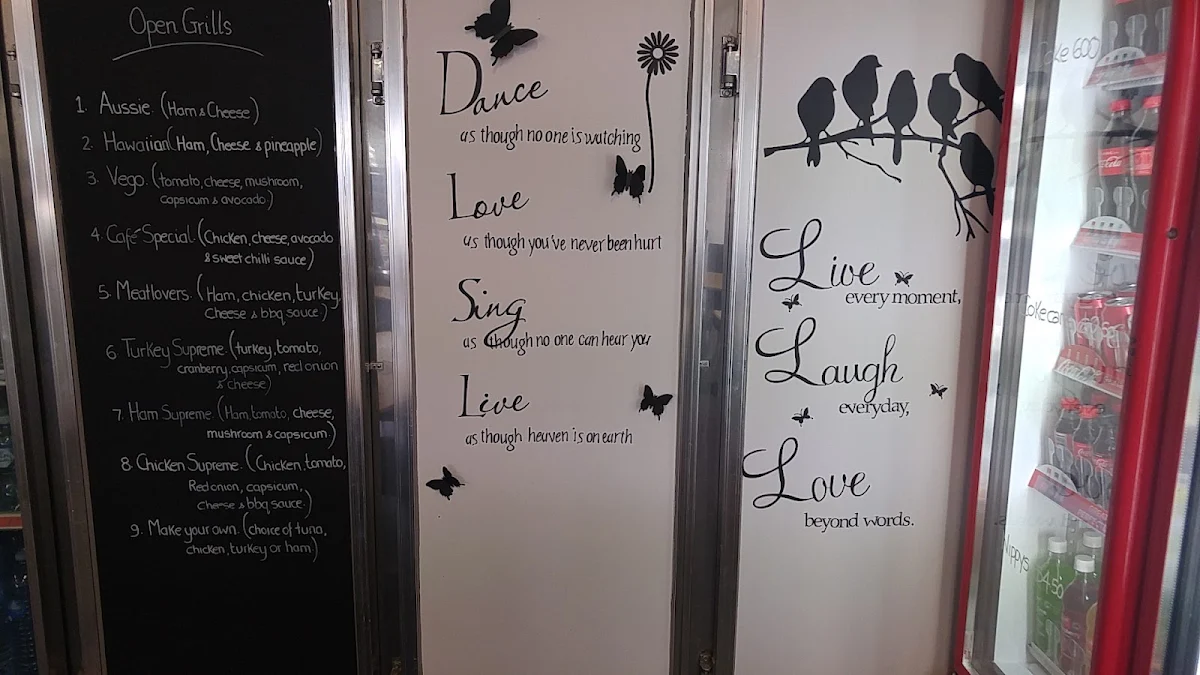 Open Grills
1. Aussie. (Ham & Cheese)
2. Hawaiian (Ham, Cheese & pineapple)
3. Vego. (tomato, cheese, mushroom,
capsicum & avocado.)
4. Café Special. (Chicken, cheese, avocado
& sweet chilli sauce)
5. Meatlovers. (Ham, chicken, turkey,
Cheese & bbq sauce.)
6. Turkey Supreme. (turkey, tomato,
cranberry, capsicum, red onion
& cheese)
7. Ham Supreme. (Ham, tomato, cheese,
mushroom & capsicum.)
8. Chicken Supreme. (Chicken, tomato,
Red onion, capsicum,
cheese & bbq sauce.)
9. Make your own. (choice of tuna,
chicken, turkey or ham)
Dance
as though no one is watching
Love
as though you've never been hurt
Sing
as though no one can hear you
Live
as though heaven is on earth
Live
every moment,
Laugh
everyday,
Love
beyond words.
Coke 600
Coca-Cola
Coke can
Nippys
$4.50